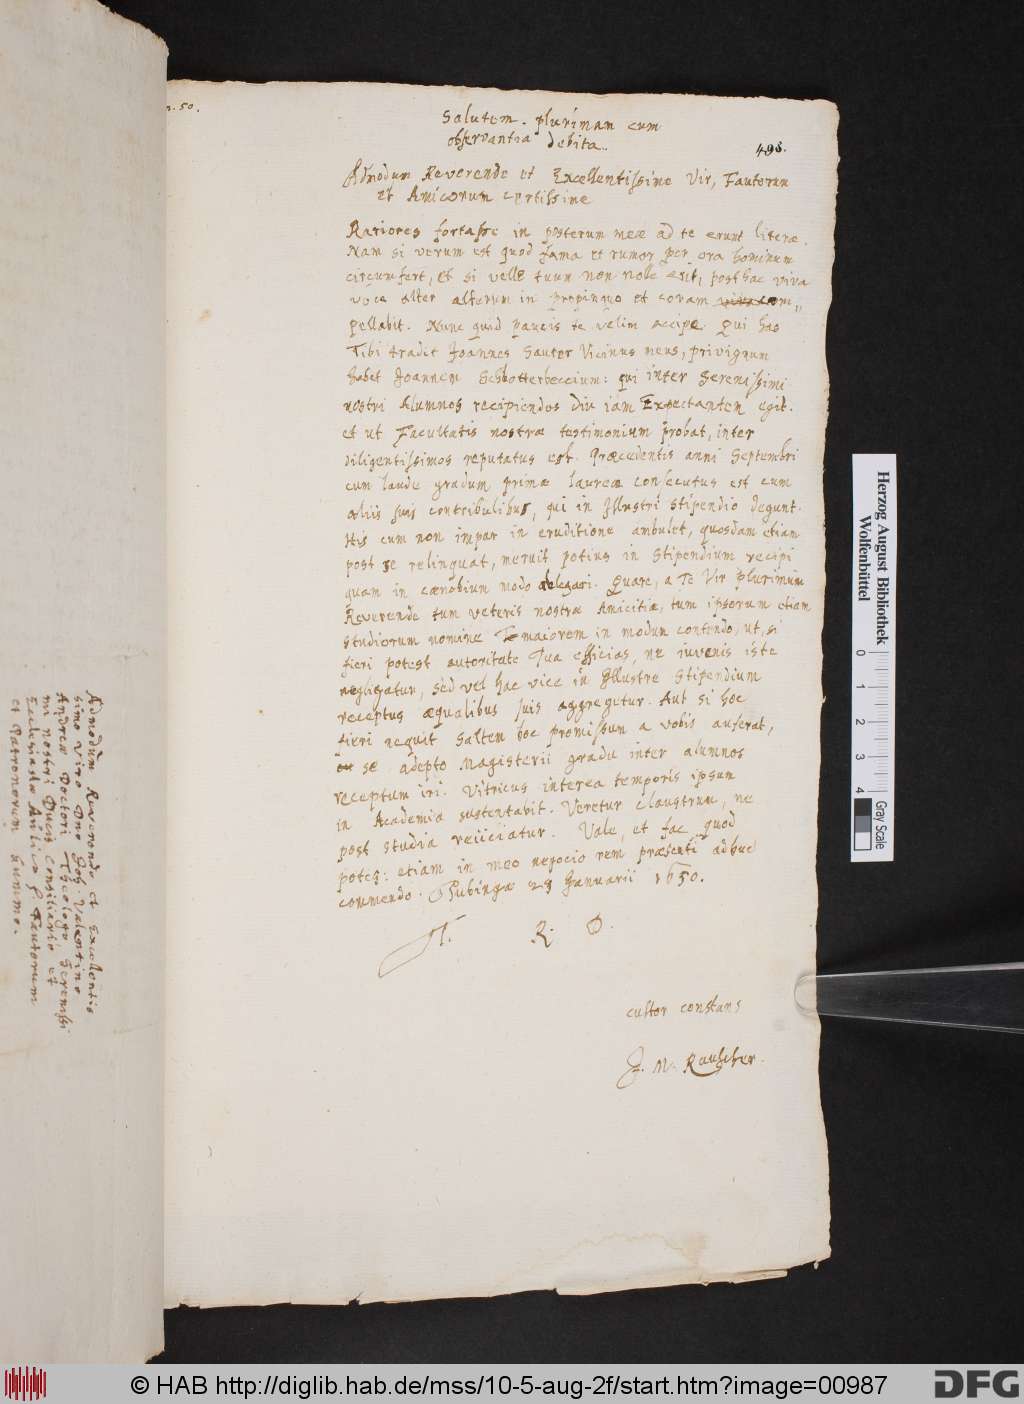 50.
Salutem plurimam cum
observantia debita.
498.
Admodum Reverende et Excellentissime Vir, Fautorum
et Amicorum certissime
Rariores fortasse in posterum meæ ad te erunt literæ.
Nam si verum est quod fama et rumor per ora hominum
circumfert, et si velle tuum non nole erit, posthac viva
voce alter alterum in propinquo et coram com,,
pellabit. Nunc quid paucis te velim accipe. Qui has
Tibi tradit Joannes Sauter Vicinus meus, privignum
habet Joannem Schbotterbeccium: qui inter Serenissimi
nostri Alumnos recipiendos diu iam Expectantem egit.
et ut Facultatis nostræ testimonium probat, inter
diligentissimos reputatus est. Præcedentis anni Septembri
cum laude gradum primæ laureæ consecutus est cum
aliis suis contribulibus, qui in Illustri Stipendio degunt.
His cum non impar in eruditione ambulet, quosdam etiam
post se relinquat, meruit potius in Stipendium recipi
quam in cænobium modo ablegari. Quare, a Te Vir plurimum
Reverende tum veteris nostræ Amicitiæ, tum ipsorum etiam
studiorum nomine Te maiorem in modum contendo, ut, si
fieri potest autoritate Tua efficias, ne iuvenis iste
negligatur, sed vel hac vice in Illustre Stipendium
receptus æqualibus suis aggregetur. Aut si hoc
fieri nequit saltem hoc promissum a vobis auferat,
se adepto Magisterii gradu inter alumnos
receptum iri. Vitricus interea temporis ipsum
in Academia sustentabit. Veretur claustrum, ne
post studia reiiciatur. Vale, et fac quod
potes: etiam in meo negocio rem præsenti adhuc
commendo. Tubingæ 23 Januarii 1650.
T. R. D.
cultor constans
J. M. Rauscher.
Admodum Reverendo et Excellentis
simo Viro Dno Joh. Valentino
Andreæ Doctori Theologo, Serenissi
mi nostri Ducis Consiliario et
Ecclesiastæ Aulico Fautorum
et Patronorum summo.
Herzog August Bibliothek
Wolfenbüttel
0 1 2 3 4
Gray Scale
© HAB http://diglib.hab.de/mss/10-5-aug-2f/start.htm?image=00987
DFG